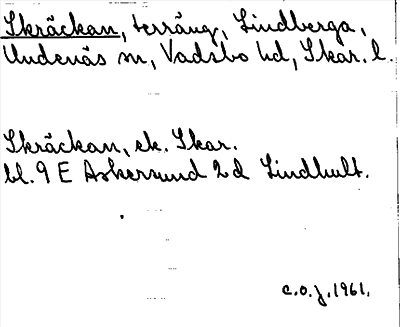 Skräckan, terräng, Lindberga,
Undenäs sn, Vadsbo hd, Skar. l.
Skräckan, ek. Skar.
bl. 9 E Askersund 2 d Lindhult.
c.o.j. 1961.